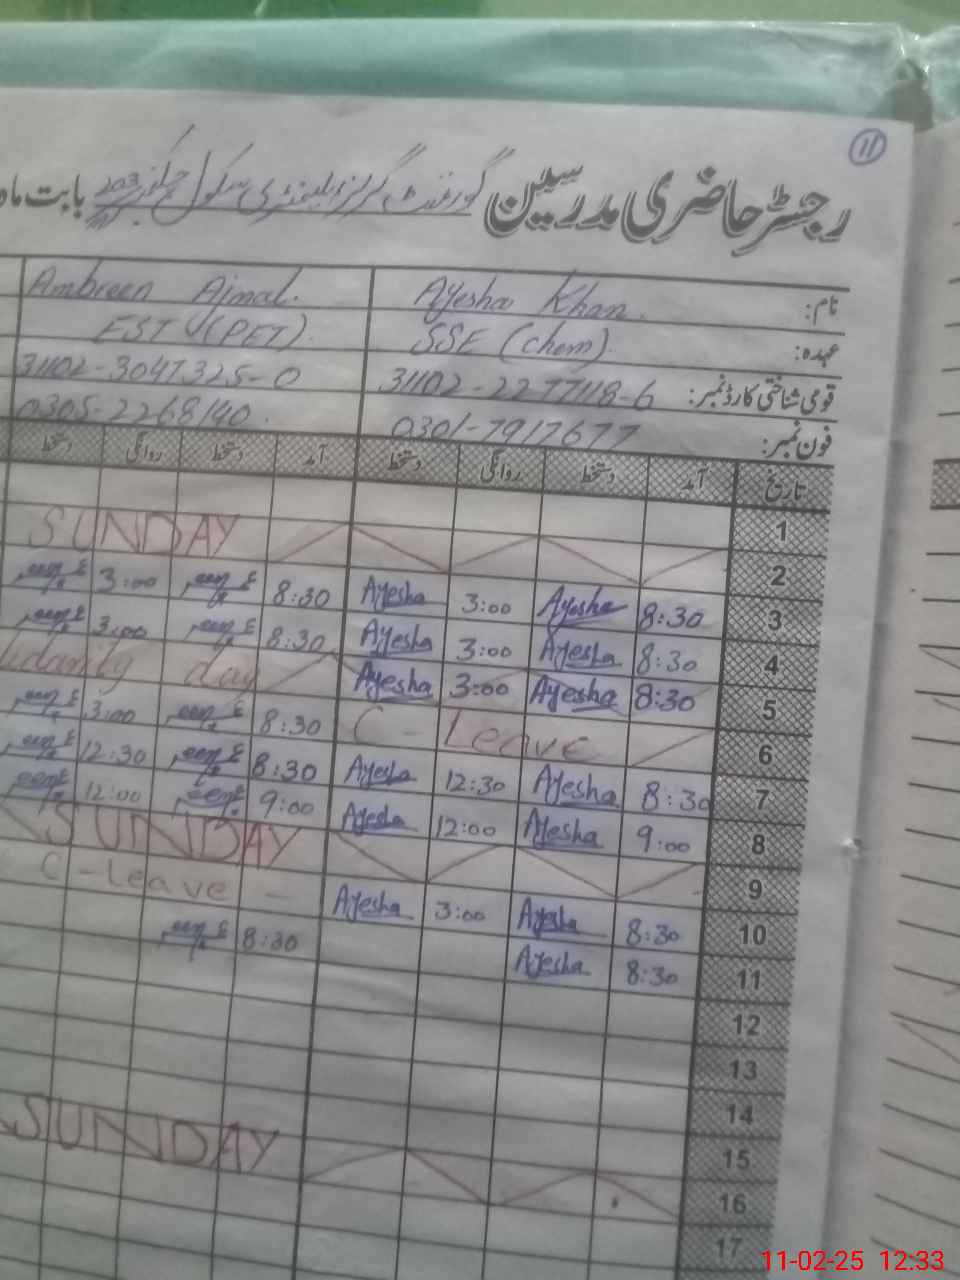 11
رجسٹر حاضری مدرسین گورنمنٹ گرلز ایلیمنٹری سکول بابت ماہ
نام: Ayesha Khan. Ambreen Ajmal.
عہدہ: SSE (Chem) EST (PET).
قومی شناختی کارڈ نمبر: 31102-2277118-6 31102-3047325-0
فون نمبر: 0301-7917677 0305-2268140.
تاریخ آمد دستخط روانگی دستخط آمد دستخط روانگی دستخط
1
2 SUNDAY
3 8:30 Ayesha 3:00 Ayesha 8:30 3:00
4 8:30 Ayesha 3:00 Ayesha 8:30 3:00
5 8:30 Ayesha 3:00 Ayesha day
6 C-Leave 8:30 3:00
7 8:30 Ayesha 12:30 Ayesha 8:30 12:30
8 9:00 Ayesha 12:00 Ayesha 9:00 12:00
9 SUNDAY
10 8:30 Ayesha 3:00 Ayesha C-Leave -
11 8:30 Ayesha 8:30
12
13
14
15
16 SUNDAY
17
11-02-25 12:33